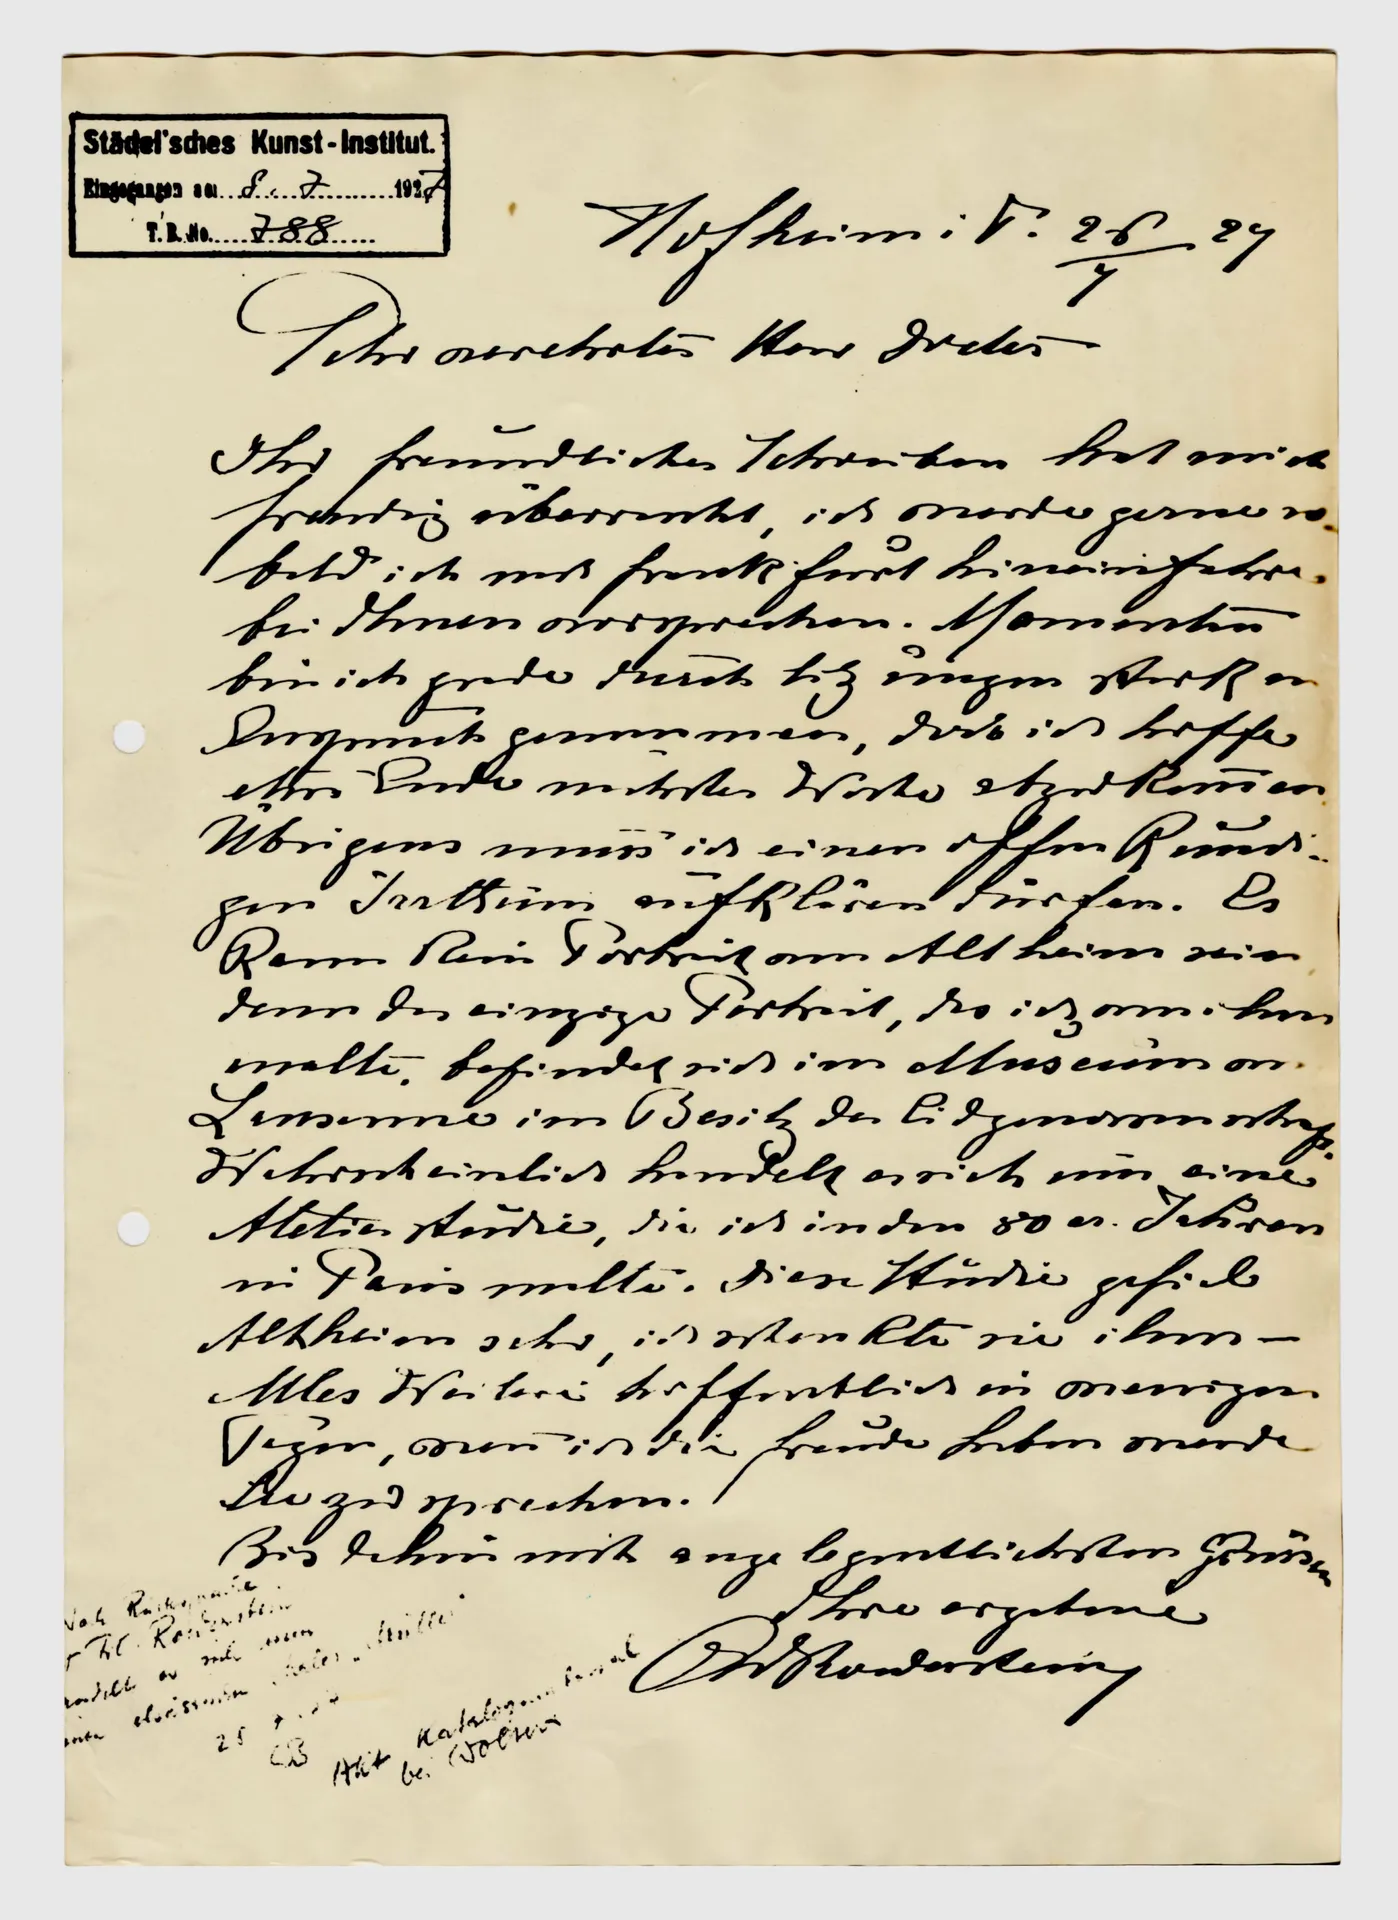 Städel'sches Kunst-Institut.
Eingegangen am 8. 7. 1927
T. B. No. 788
Hofheim i T. 26/7 27
Sehr verehrter Herr
Ihr freundliches Schreiben hat mich
freudig überrascht, ich werde gerne so
bald ich nach Frankfurt hineinfahre
bei Ihnen vorsprechen. Momentan
bin ich grade durch Sitzungen stark in
Anspruch genommen, doch ich hoffe
Ende nächster Woche abzukommen
Übrigens muss ich einen offenkundi-
gen Irrthum aufklären dürfen. Es
kann kein Portrait von Altheim sein
denn das einzige Portrait, das ich von ihm
malte, befindet sich im Museum von
Lausanne im Besitz der Eidgenossenschaft.
Wahrscheinlich handelt es sich um eine
Atelierstudie, die ich in den 80 er. Jahren
in Paris malte. Diese Studie gefiel
Altheim sehr, ich schenkte sie ihm –
Alles Weitere hoffentlich in wenigen
Tagen, wenn ich die Freude haben werde
Sie zu sprechen.
Bis dahin mit angelegentlichsten Grüssen
Ihre ergebene
Roederstein
Nach Rücksprache
Frl. Roederstein
handelt es sich um
25
Akt
bei